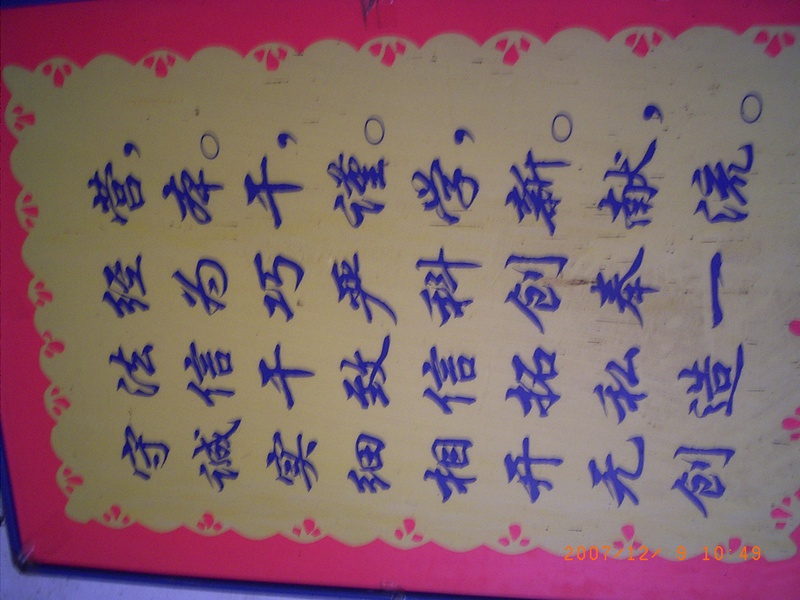 守法经营，
诚信为本。
实干巧干，
细致严谨。
相信科学，
开拓创新。
无私奉献，
创造一流。
2007/12/ 9 10:49